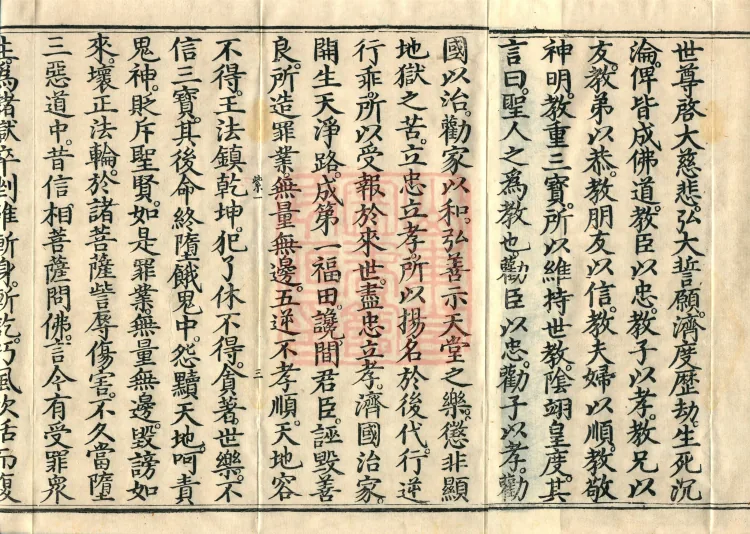 世尊啓大慈悲。弘大誓願。濟度歷劫。生死沉
淪。俾皆成佛道。教臣以忠。教子以孝。教兄以
友。教弟以恭。教朋友以信。教夫婦以順。教敬
神明。教重三寶。所以維持世教。陰翊皇度。其
言曰。聖人之為教也。勸臣以忠。勸子以孝。勸
國以治。勸家以和。弘善示天堂之樂。懲非顯
地獄之苦。立忠立孝。所以揚名於後代。行逆
行乖。所以受報於來世。盡忠立孝。濟國治家。
開生天淨路。成第一福田。讒間君臣。誣毀善
良。所造罪業。無量無邊。五逆不孝順。天地容
不得。王法鎮乾坤。犯了休不得。貪著世樂。不
紫一
三
信三寶。其後命終墮餓鬼中。怨黷天地。呵責
鬼神。貶斥聖賢。如是罪業。無量無邊。毀謗如
來。壞正法輪。於諸菩薩呰辱傷害。不久當墮
三惡道中。昔信相菩薩問佛。言今有受罪衆
生。為諸獄卒剉碓斬身。斬訖。巧風吹活而復